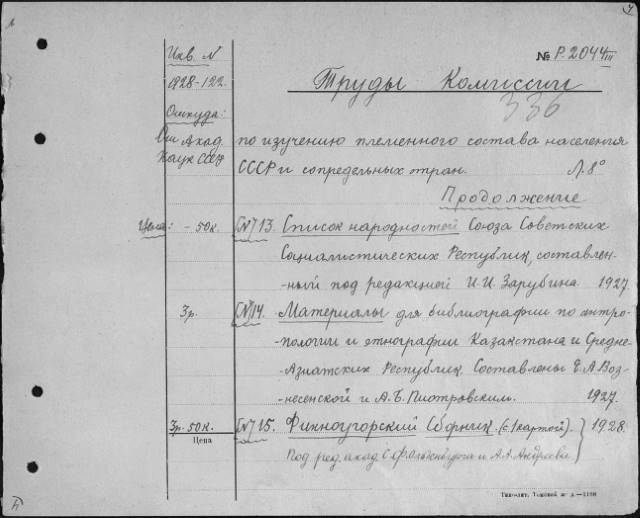 4
Инв. N
№ Р-2044 III
1928-122.
Труды Комиссии
336
Откуда:
Акад. Наук СССР
по изучению племенного состава населения
СССР и сопредельных стран. Л. 8°
Продолжение
Цена: - 50к. № 13. Список народностей Союза Советских
Социалистических Республик, составлен-
ный под редакцией И. И. Зарубина 1927.
3р. № 14. Материалы для библиографии по антро-
пологии и этнографии Казакстана и Средне-
Азиатских Республик. Составлены Е. А. Воз-
несенской и А. Б. Пиотровским. 1927.
3р. 50к. № 15. Финноугорский Сборник. (с 1 картой). 1928.
Цена
Под ред. акад. С. Ф. Ольденбурга и А. А. Андреева
4
Типолит. Томской ж. д.